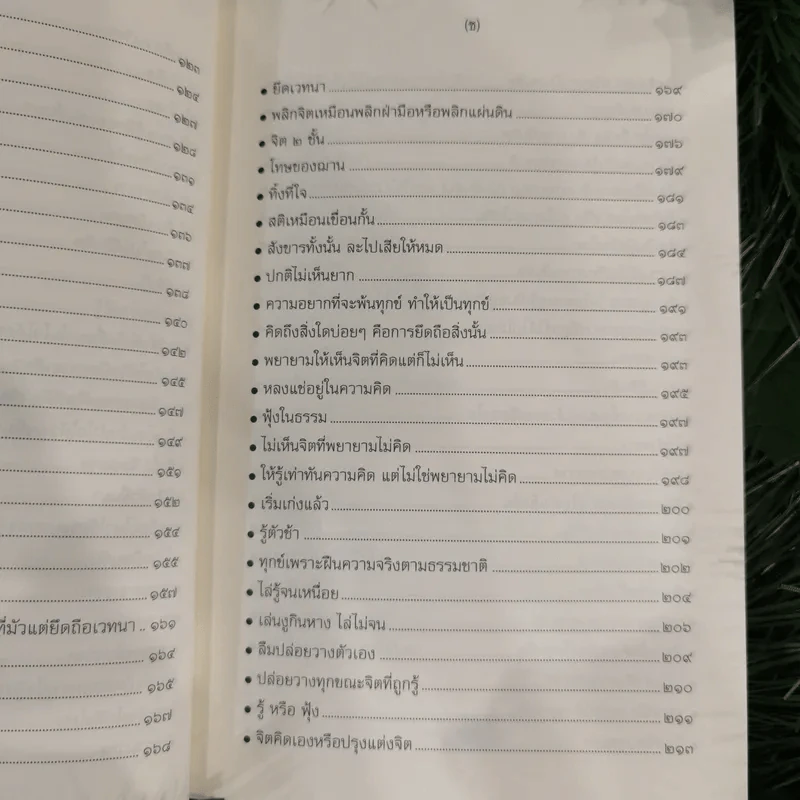 ๑๒๓
๑๒๔
๑๒๗
๑๒๘
๑๓๑
๑๓๔
๑๓๖
๑๓๗
๑๓๘
๑๔๐
๑๔๒
๑๔๕
๑๔๗
๑๔๙
๑๕๑
๑๕๒
๑๕๔
๑๕๕
๑๕๗
ที่มัวแต่ยึดถือเวทนา .. ๑๖๑
๑๖๔
๑๖๕
๑๖๗
๑๖๘
(ช)
• ยึดเวทนา ๑๖๙
• พลิกจิตเหมือนพลิกฝ่ามือหรือพลิกแผ่นดิน ๑๗๐
• จิต ๒ ชั้น ๑๗๖
• โทษของฌาน ๑๗๙
• ทิ้งที่ใจ ๑๘๑
• สติเหมือนเขื่อนกั้น ๑๘๓
• สังขารทั้งนั้น ละไปเสียให้หมด ๑๘๔
• ปกติไม่เห็นยาก ๑๘๗
• ความอยากที่จะพ้นทุกข์ ทำให้เป็นทุกข์ ๑๙๑
• คิดถึงสิ่งใดบ่อยๆ คือการยึดถือสิ่งนั้น ๑๙๓
• พยายามให้เห็นจิตที่คิดแต่ก็ไม่เห็น ๑๙๓
• หลงแช่อยู่ในความคิด ๑๙๕
• ฟุ้งในธรรม ๑๙๗
• ไม่เห็นจิตที่พยายามไม่คิด ๑๙๗
• ให้รู้เท่าทันความคิด แต่ไม่ใช่พยายามไม่คิด ๑๙๘
• เริ่มเก่งแล้ว ๒๐๐
• รู้ตัวช้า ๒๐๑
• ทุกข์เพราะฝืนความจริงตามธรรมชาติ ๒๐๒
• ไล่รู้จนเหนื่อย ๒๐๔
• เล่นงูกินหาง ไล่ไม่จน ๒๐๖
• ลืมปล่อยวางตัวเอง ๒๐๙
• ปล่อยวางทุกขณะจิตที่ถูกรู้ ๒๑๐
• รู้ หรือ ฟุ้ง ๒๑๑
• จิตคิดเองหรือปรุงแต่งจิต ๒๑๓